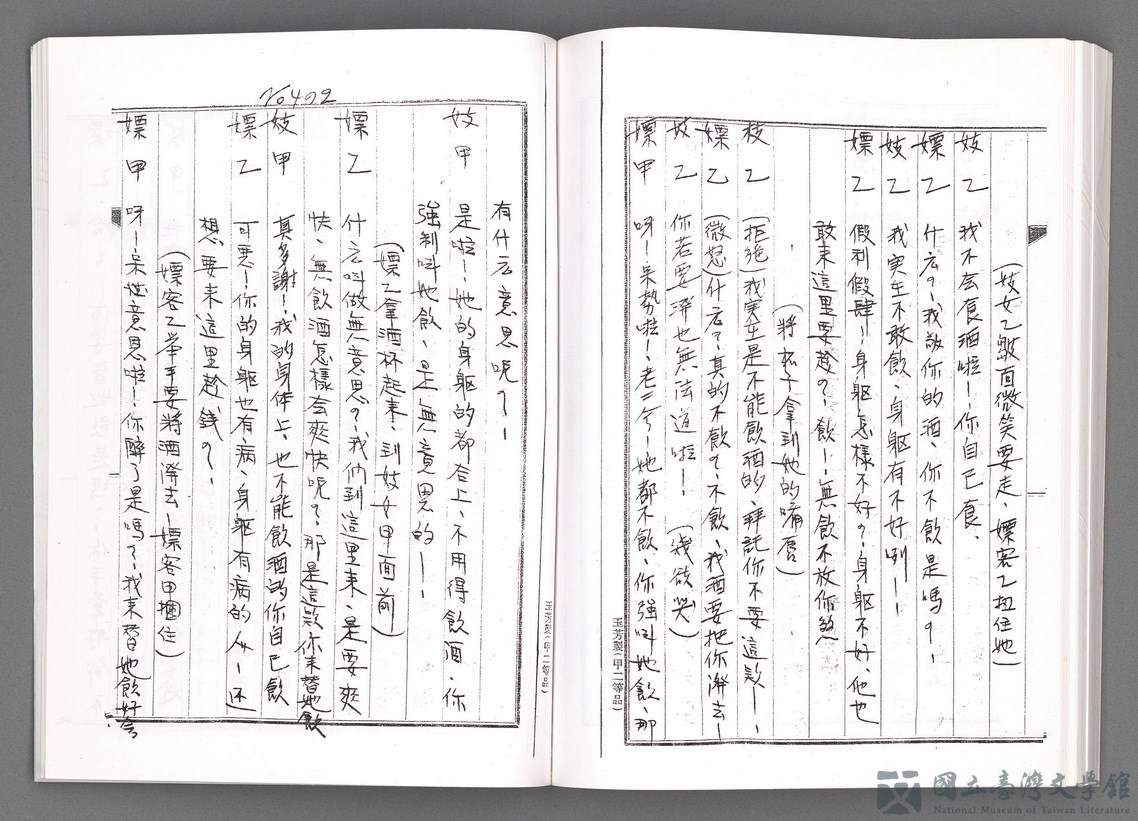 (妓女乙皺面微笑要走、嫖客乙扭住她)
妓乙 我不会食酒啦！你自己食、
嫖乙 什么？我敬你的酒、你不飲是嗎？！
妓乙 我实在不敢飲、身軀有不好咧！！
嫖乙 假利假肆！身軀怎樣不好？身軀不好、他也
敢来這里要趁？飲！！無飲不放你煞
(將杯子拿到她的嘴唇)
妓乙 (拒絶)我实在是不能飲酒的、拜託你不要這款！！
嫖乙 (微怒)什么？真的不飲？不飲、我酒要把你潑去！
妓乙 你若要潑也無法道啦！！(幾欲哭)
嫖甲 呀！呆勢啦！老二兮！她都不飲、你強叫她飲、那
玉芳製(甲二等品)
No 402
有什么意思呢？！
妓甲 是啦！她的身軀的都合上、不用得飲酒、你
強制叫她飲、是無意思的！！
(嫖乙拿酒杯起来、到妓女甲面前)
嫖乙 什么叫做無意思？我們到這里来、是要爽
快、無飲酒怎樣会爽快呢？那是這款你来替她飲
妓甲 真多謝！我的身体上、也不能飲酒的你自己飲
嫖乙 可惡！你的身軀也有病、身軀有病的人！还
想要来這里趁錢？！
(嫖客乙举手要將酒潑去！嫖客甲摑住)
嫖甲 呀！呆世意思啦！你醉了是嗎？我来替她飲好会
玉芳製(甲二等品)
國立臺灣文學館
National Museum of Taiwan Literature